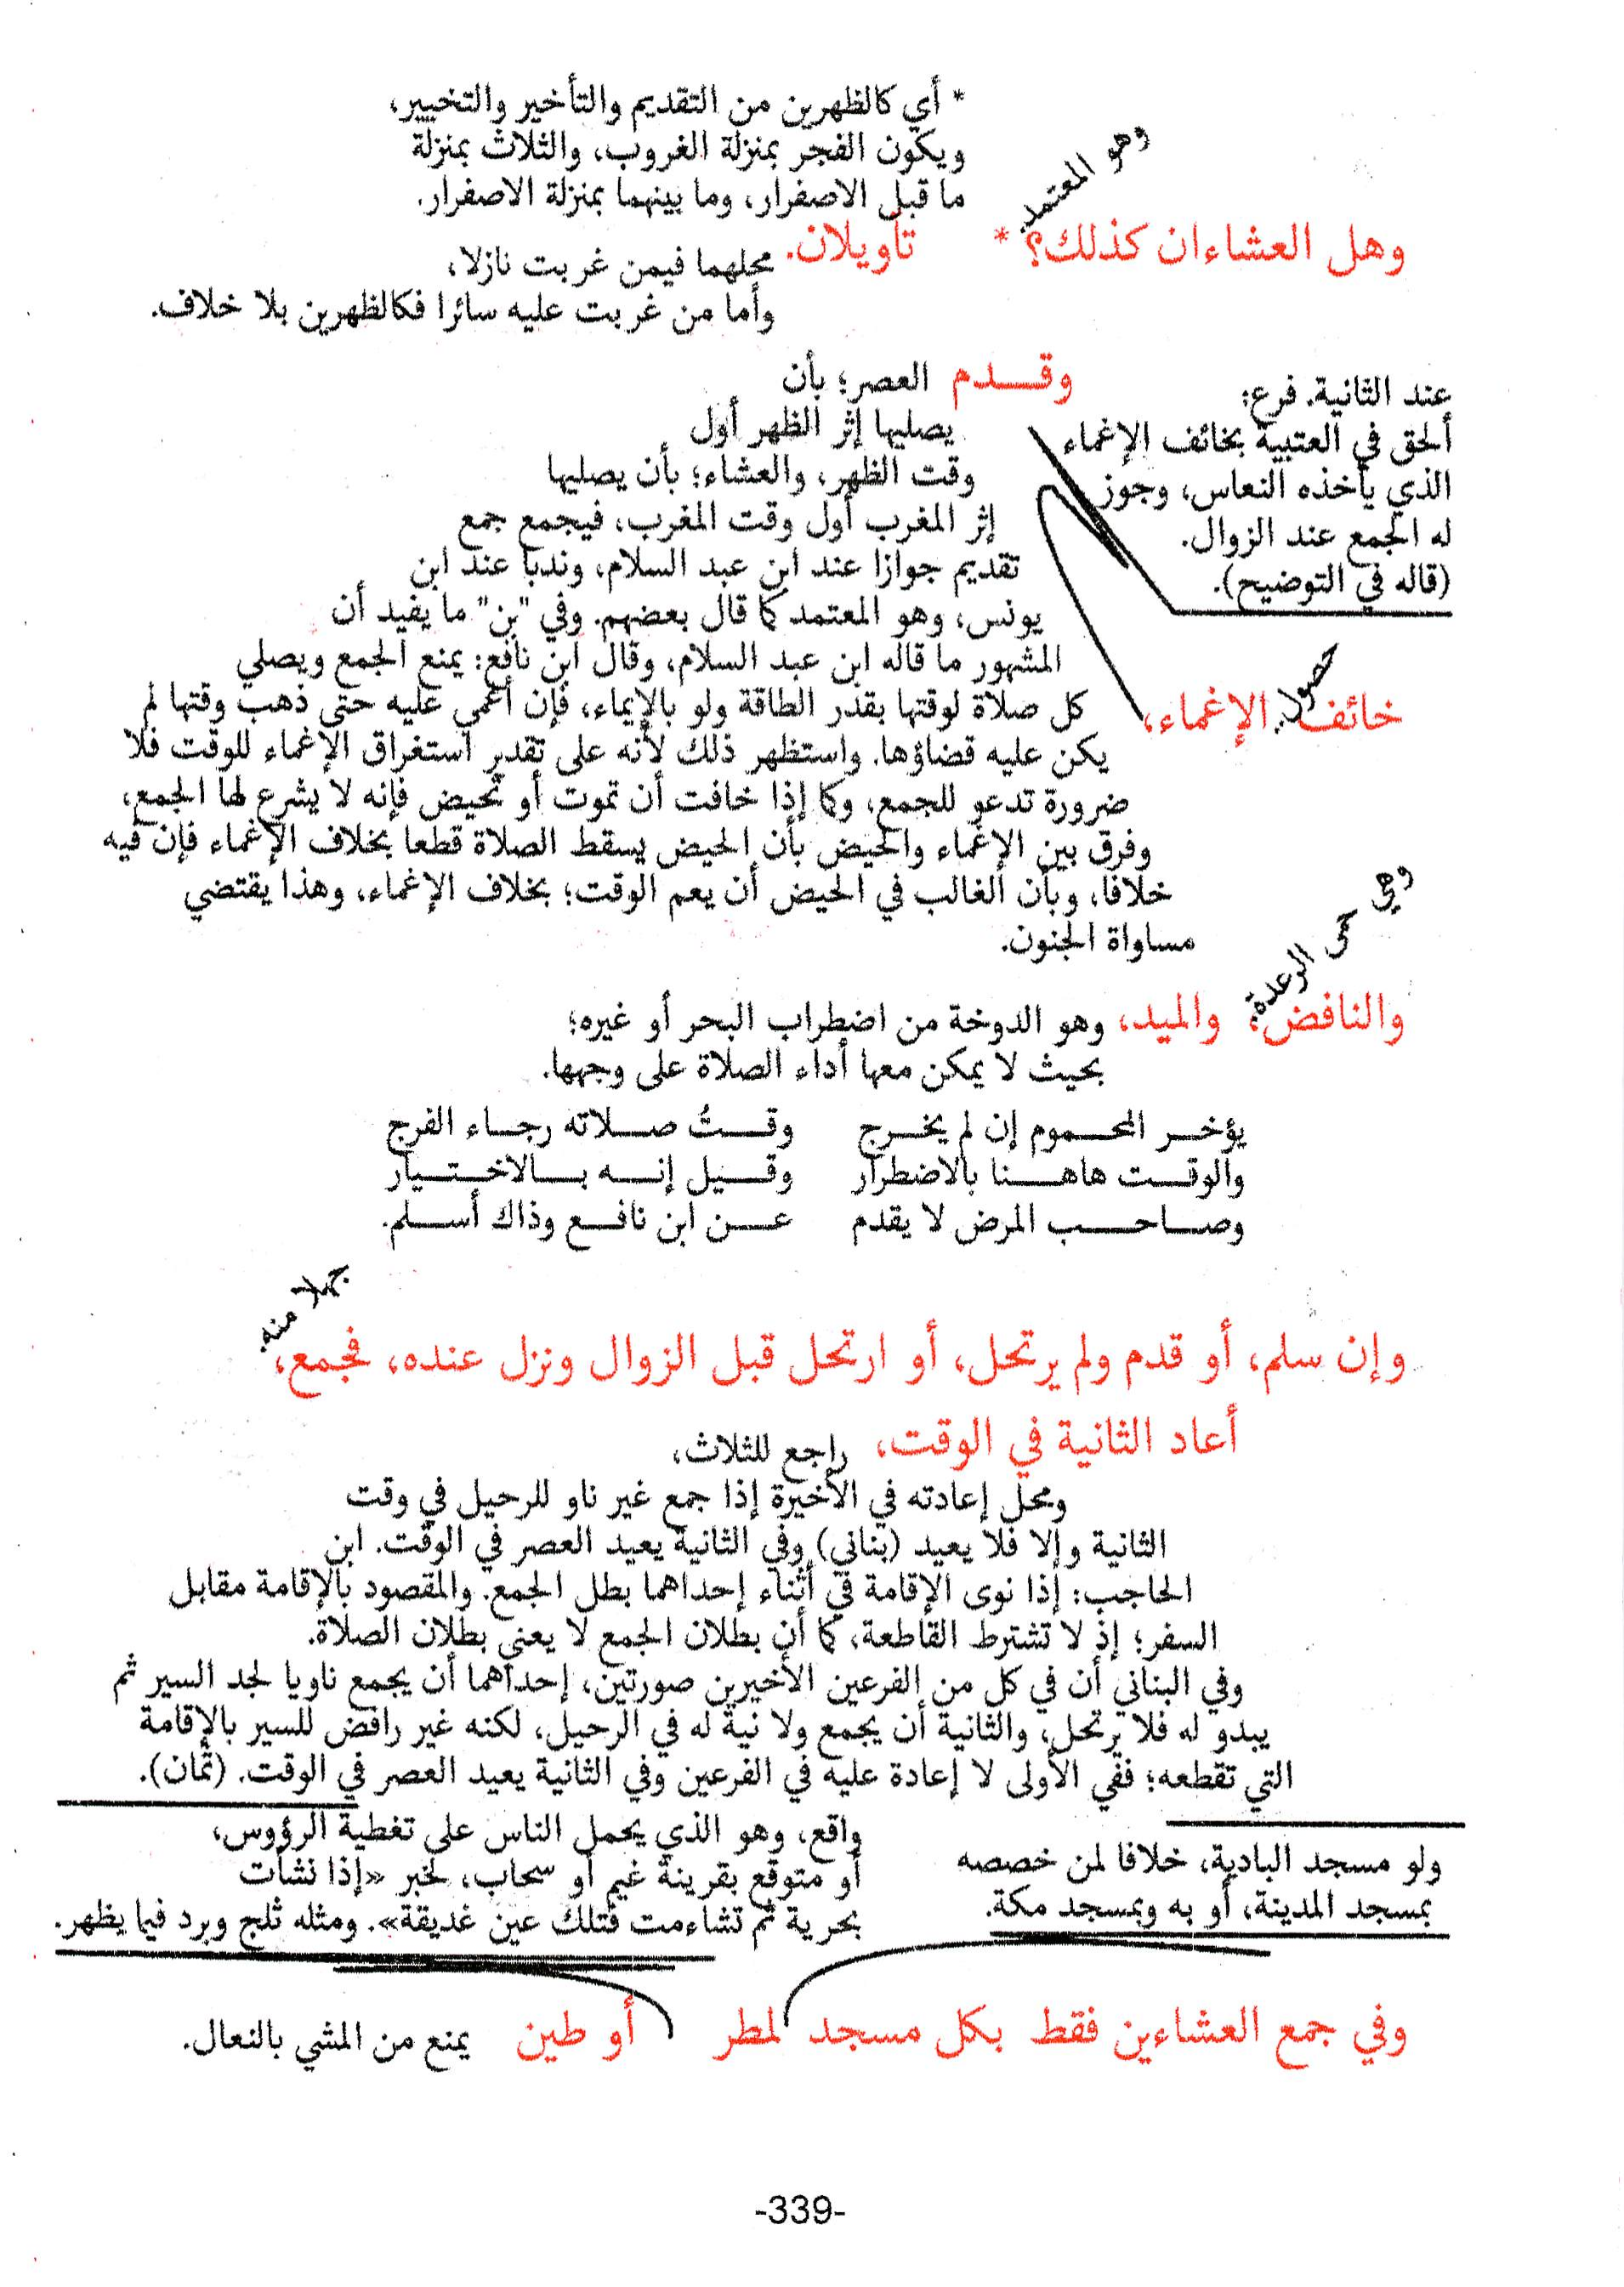 * أي كالظهرين من التقديم والتأخير والتخيير،
ويكون الفجر بمنزلة الغروب، والثلاث بمنزلة
ما قبل الاصفرار، وما بينهما بمنزلة الاصفرار.
وهو المعتمد.
وهل العشاءان كذلك؟ * تأويلان.
محلهما فيمن غربت نازلا،
وأما من غربت عليه سائرا فكالظهرين بلا خلاف.
وقدم العصر؛ بأن
يصليها إثر الظهر أول
وقت الظهر، والعشاء؛ بأن يصليها
إثر المغرب أول وقت المغرب، فيجمع جمع
تقديم جوازا عند ابن عبد السلام، وندبا عند ابن
يونس، وهو المعتمد كما قال بعضهم. وفي "بن" ما يفيد أن
المشهور ما قاله ابن عبد السلام، وقال ابن نافع: يمنع الجمع ويصلي
كل صلاة لوقتها بقدر الطاقة ولو بالإيماء، فإن أغمي عليه حتى ذهب وقتها لم
يكن عليه قضاؤها. واستظهر ذلك لأنه على تقدير استغراق الإغماء للوقت فلا
ضرورة تدعو للجمع، وكما إذا خافت أن تموت أو تحيض فإنه لا يشرع لها الجمع،
وفرق بين الإغماء والحيض بأن الحيض يسقط الصلاة قطعا بخلاف الإغماء فإن فيه
خلافا، وبأن الغالب في الحيض أن يعم الوقت؛ بخلاف الإغماء، وهذا يقتضي
مساواة الجنون.
عند الثانية. فرع:
ألحق في العتبية بخائف الإغماء
الذي يأخذه النعاس، وجوز
له الجمع عند الزوال.
(قاله في التوضيح).
حصول
خائف الإغماء،
وهي حمى الرعدة.
والنافض، والميد، وهو الدوخة من اضطراب البحر أو غيره؛
بحيث لا يمكن معها أداء الصلاة على وجهها.
يؤخر المحموم إن لم يخرج وقتُ صلاته رجاء الفرج
والوقت هاهنا بالاضطرار وقيل إنه بالاختيار
وصاحب المرض لا يقدم عن ابن نافع وذاك أسلم.
جهلا منه.
وإن سلم، أو قدم ولم يرتحل، أو ارتحل قبل الزوال ونزل عنده، فجمع،
أعاد الثانية في الوقت، راجع للثلاث،
ومحل إعادته في الأخيرة إذا جمع غير ناو للرحيل في وقت
الثانية وإلا فلا يعيد (بناني) وفي الثانية يعيد العصر في الوقت. ابن
الحاجب: إذا نوى الإقامة في أثناء إحداهما بطل الجمع. والمقصود بالإقامة مقابل
السفر؛ إذ لا تشترط القاطعة، كما أن بطلان الجمع لا يعني بطلان الصلاة.
وفي البناني أن في كل من الفرعين الأخيرين صورتين، إحداهما أن يجمع ناويا لجد السير ثم
يبدو له فلا يرتحل، والثانية أن يجمع ولا نية له في الرحيل، لكنه غير رافض للسير بالإقامة
التي تقطعه؛ ففي الأولى لا إعادة عليه في الفرعين وفي الثانية يعيد العصر في الوقت. (ثمان).
ولو مسجد البادية، خلافا لمن خصصه
بمسجد المدينة، أو به وبمسجد مكة.
واقع، وهو الذي يحمل الناس على تغطية الرؤوس،
أو متوقع بقرينة غيم أو سحاب، لخبر «إذا نشأت
بحرية ثم تشاءمت فتلك عين غديقة». ومثله ثلج وبرد فيما يظهر.
وفي جمع العشاءين فقط بكل مسجد لمطر أو طين يمنع من المشي بالنعال.
-339-